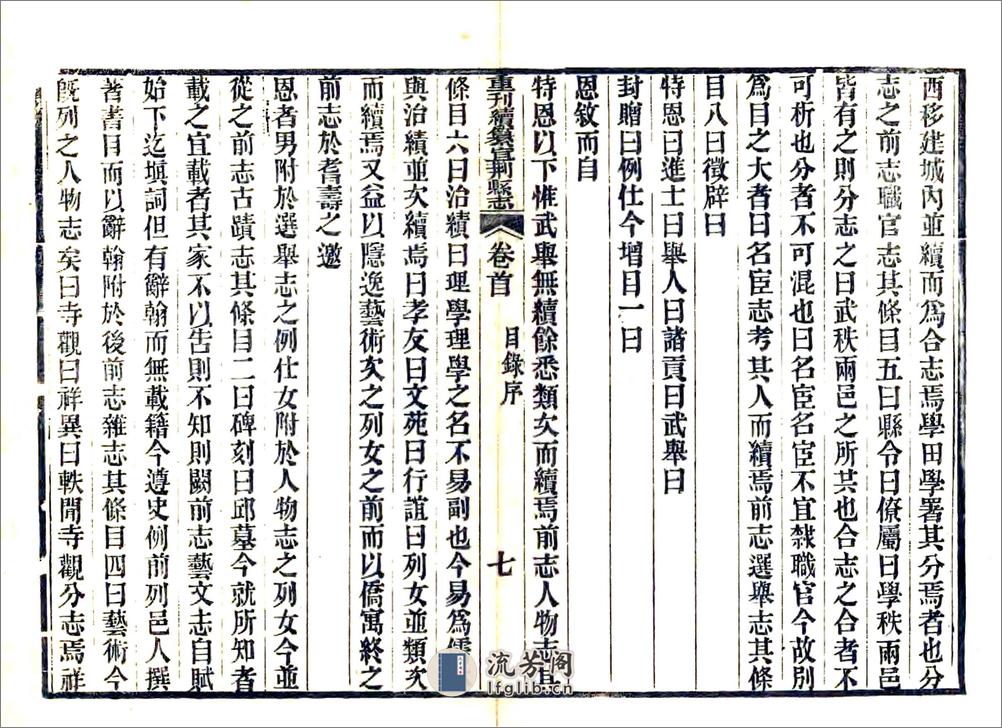 西移建城內並續而爲合志焉學田學署其分焉者也分
志之前志職官志其條目五曰縣令曰僚屬曰學秩兩邑
皆有之則分志之曰武秩兩邑之所共也合志之合者不
可析也分者不可混也曰名宦名宦不宜隸職官今故別
爲目之大者曰名宦志考其人而續焉前志選舉志其條
目八曰徵辟曰
特恩曰進士曰舉人曰諸貢曰武舉曰
封贈曰例仕今增目一曰
恩敘而自
特恩以下惟武舉無續餘悉類次而續焉前志人物志其
重刊續纂宜荊縣志
卷首
目錄序
七
條目六曰治績曰理學理學之名不易副也今易爲儒
與治績並次續焉曰孝友曰文苑曰行誼曰列女並類次
而續焉又益以隱逸藝術次之列女之前而以僑寓終之
前志於耆壽之邀
恩者男附於選舉志之例仕女附於人物志之列女今並
從之前志古蹟志其條目二曰碑刻曰邱墓今就所知者
載之宜載者其家不以告則不知則闕前志藝文志自賦
始下迄塡詞但有辭翰而無載籍今遵史例前列邑人撰
著書目而以辭翰附於後前志雜志其條目四曰藝術今
旣列之人物志矣曰寺觀曰祥異曰軼聞寺觀分志焉祥
流芳阁
lfglib.cn